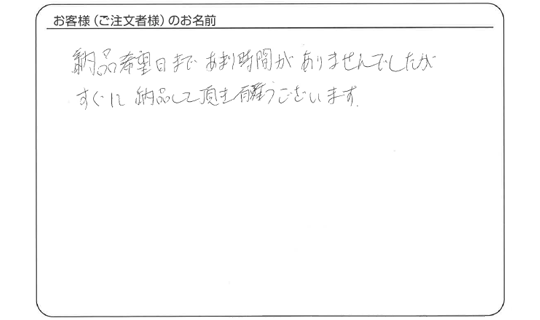 お客様（ご注文者様）のお名前
納品希望日まであまり時間がありませんでしたが
すぐに納品して頂き有難うございます。